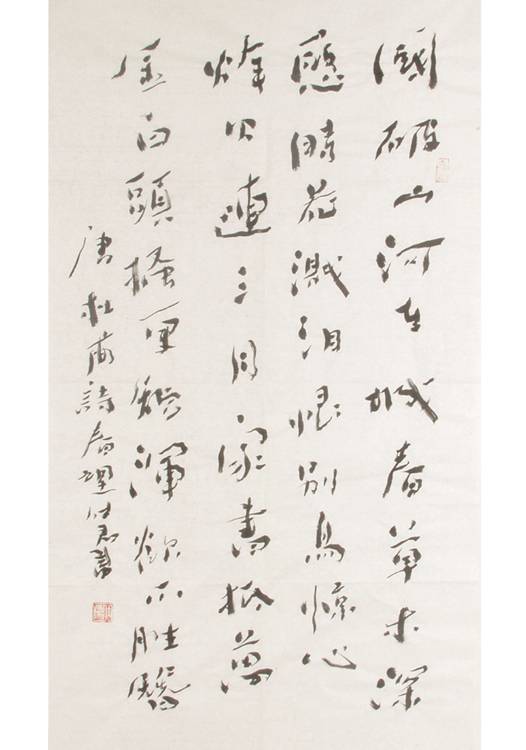 國破山河在城春草木深
感時花濺泪恨别鳥惊心
烽火連三月家書抵萬
金白頭搔更短渾欲不胜簪
唐杜甫詩春望